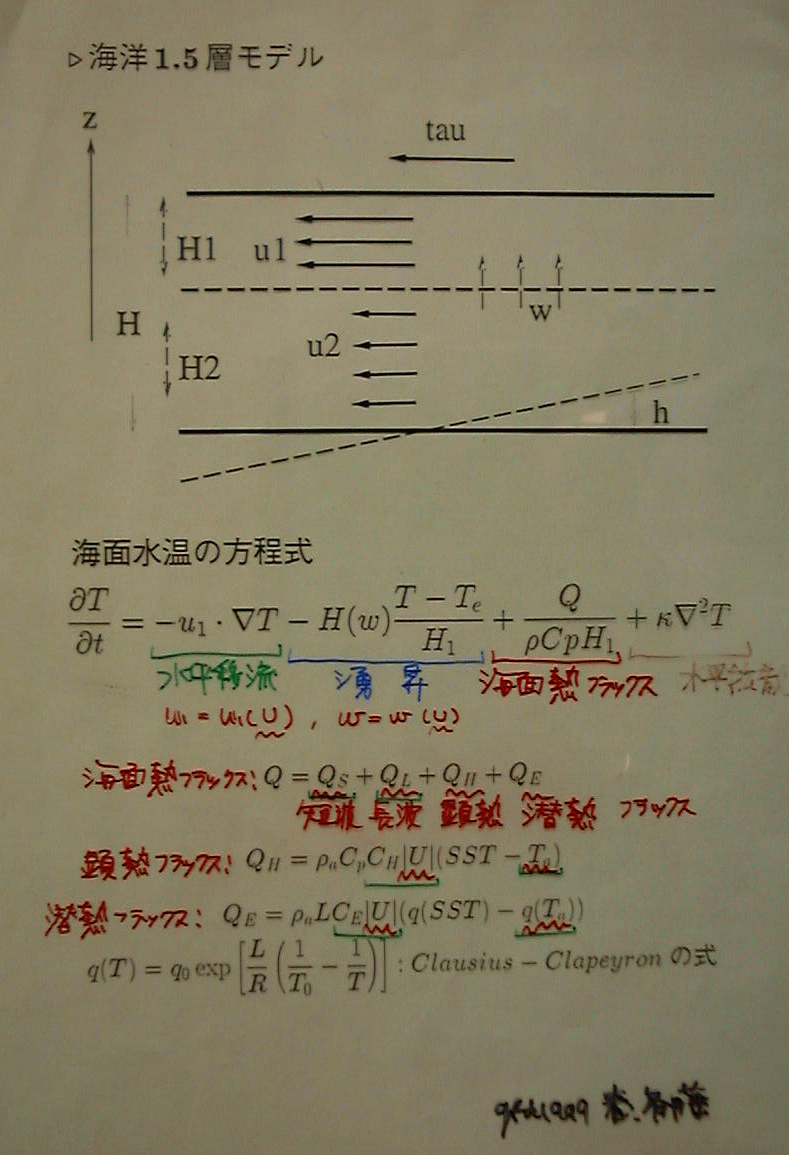 ▷海洋1.5層モデル
z
tau
H1
u1
H
w
u2
H2
h
海面水温の方程式
∂T/∂t = −u₁ · ∇T − H(w) (T − Tₑ)/H₁ + Q/(ρCpH₁) + κ∇²T
水平移流 湧昇 海面熱フラックス 水平拡散
u₁ = u₁(U) , w = w(U)
海面熱フラックス: Q = Q_S + Q_L + Q_H + Q_E
短波 長波 顕熱 潜熱 フラックス
顕熱フラックス: Q_H = ρₐC_pC_H|U|(SST − Tₐ)
潜熱フラックス: Q_E = ρₐLC_E|U|(q(SST) − q(Tₐ))
q(T) = q₀ exp [L/R (1/T₀ − 1/T)] : Clausius − Clapeyron の式